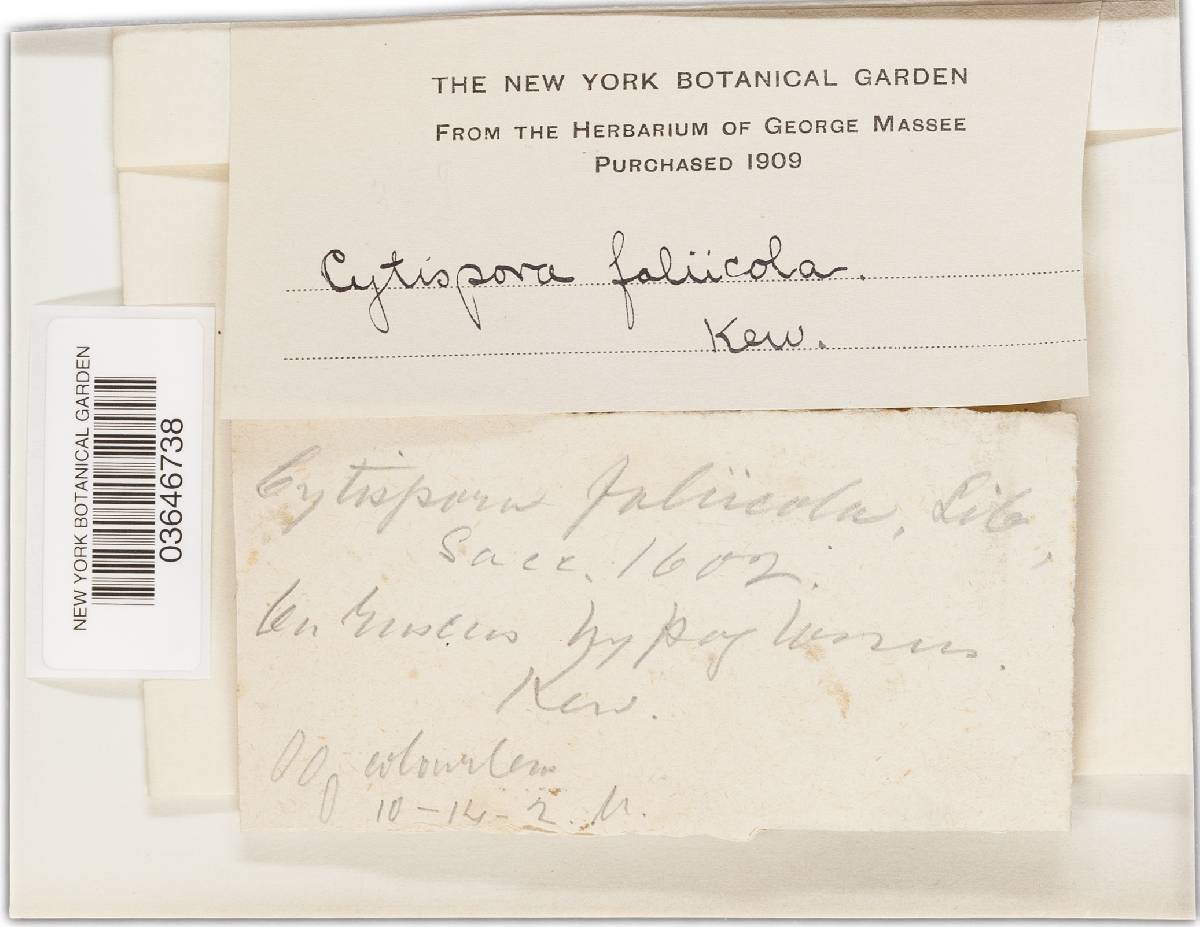 THE NEW YORK BOTANICAL GARDEN
FROM THE HERBARIUM OF GEORGE MASSEE
PURCHASED 1909
Cytispora foliicola.
Kew.
NEW YORK BOTANICAL GARDEN
03646738
Cytispora foliicola, Lib,
Sacc. 1602.
On Ruscus hypoglossum.
Kew.
colourless
10-14-2. μ.